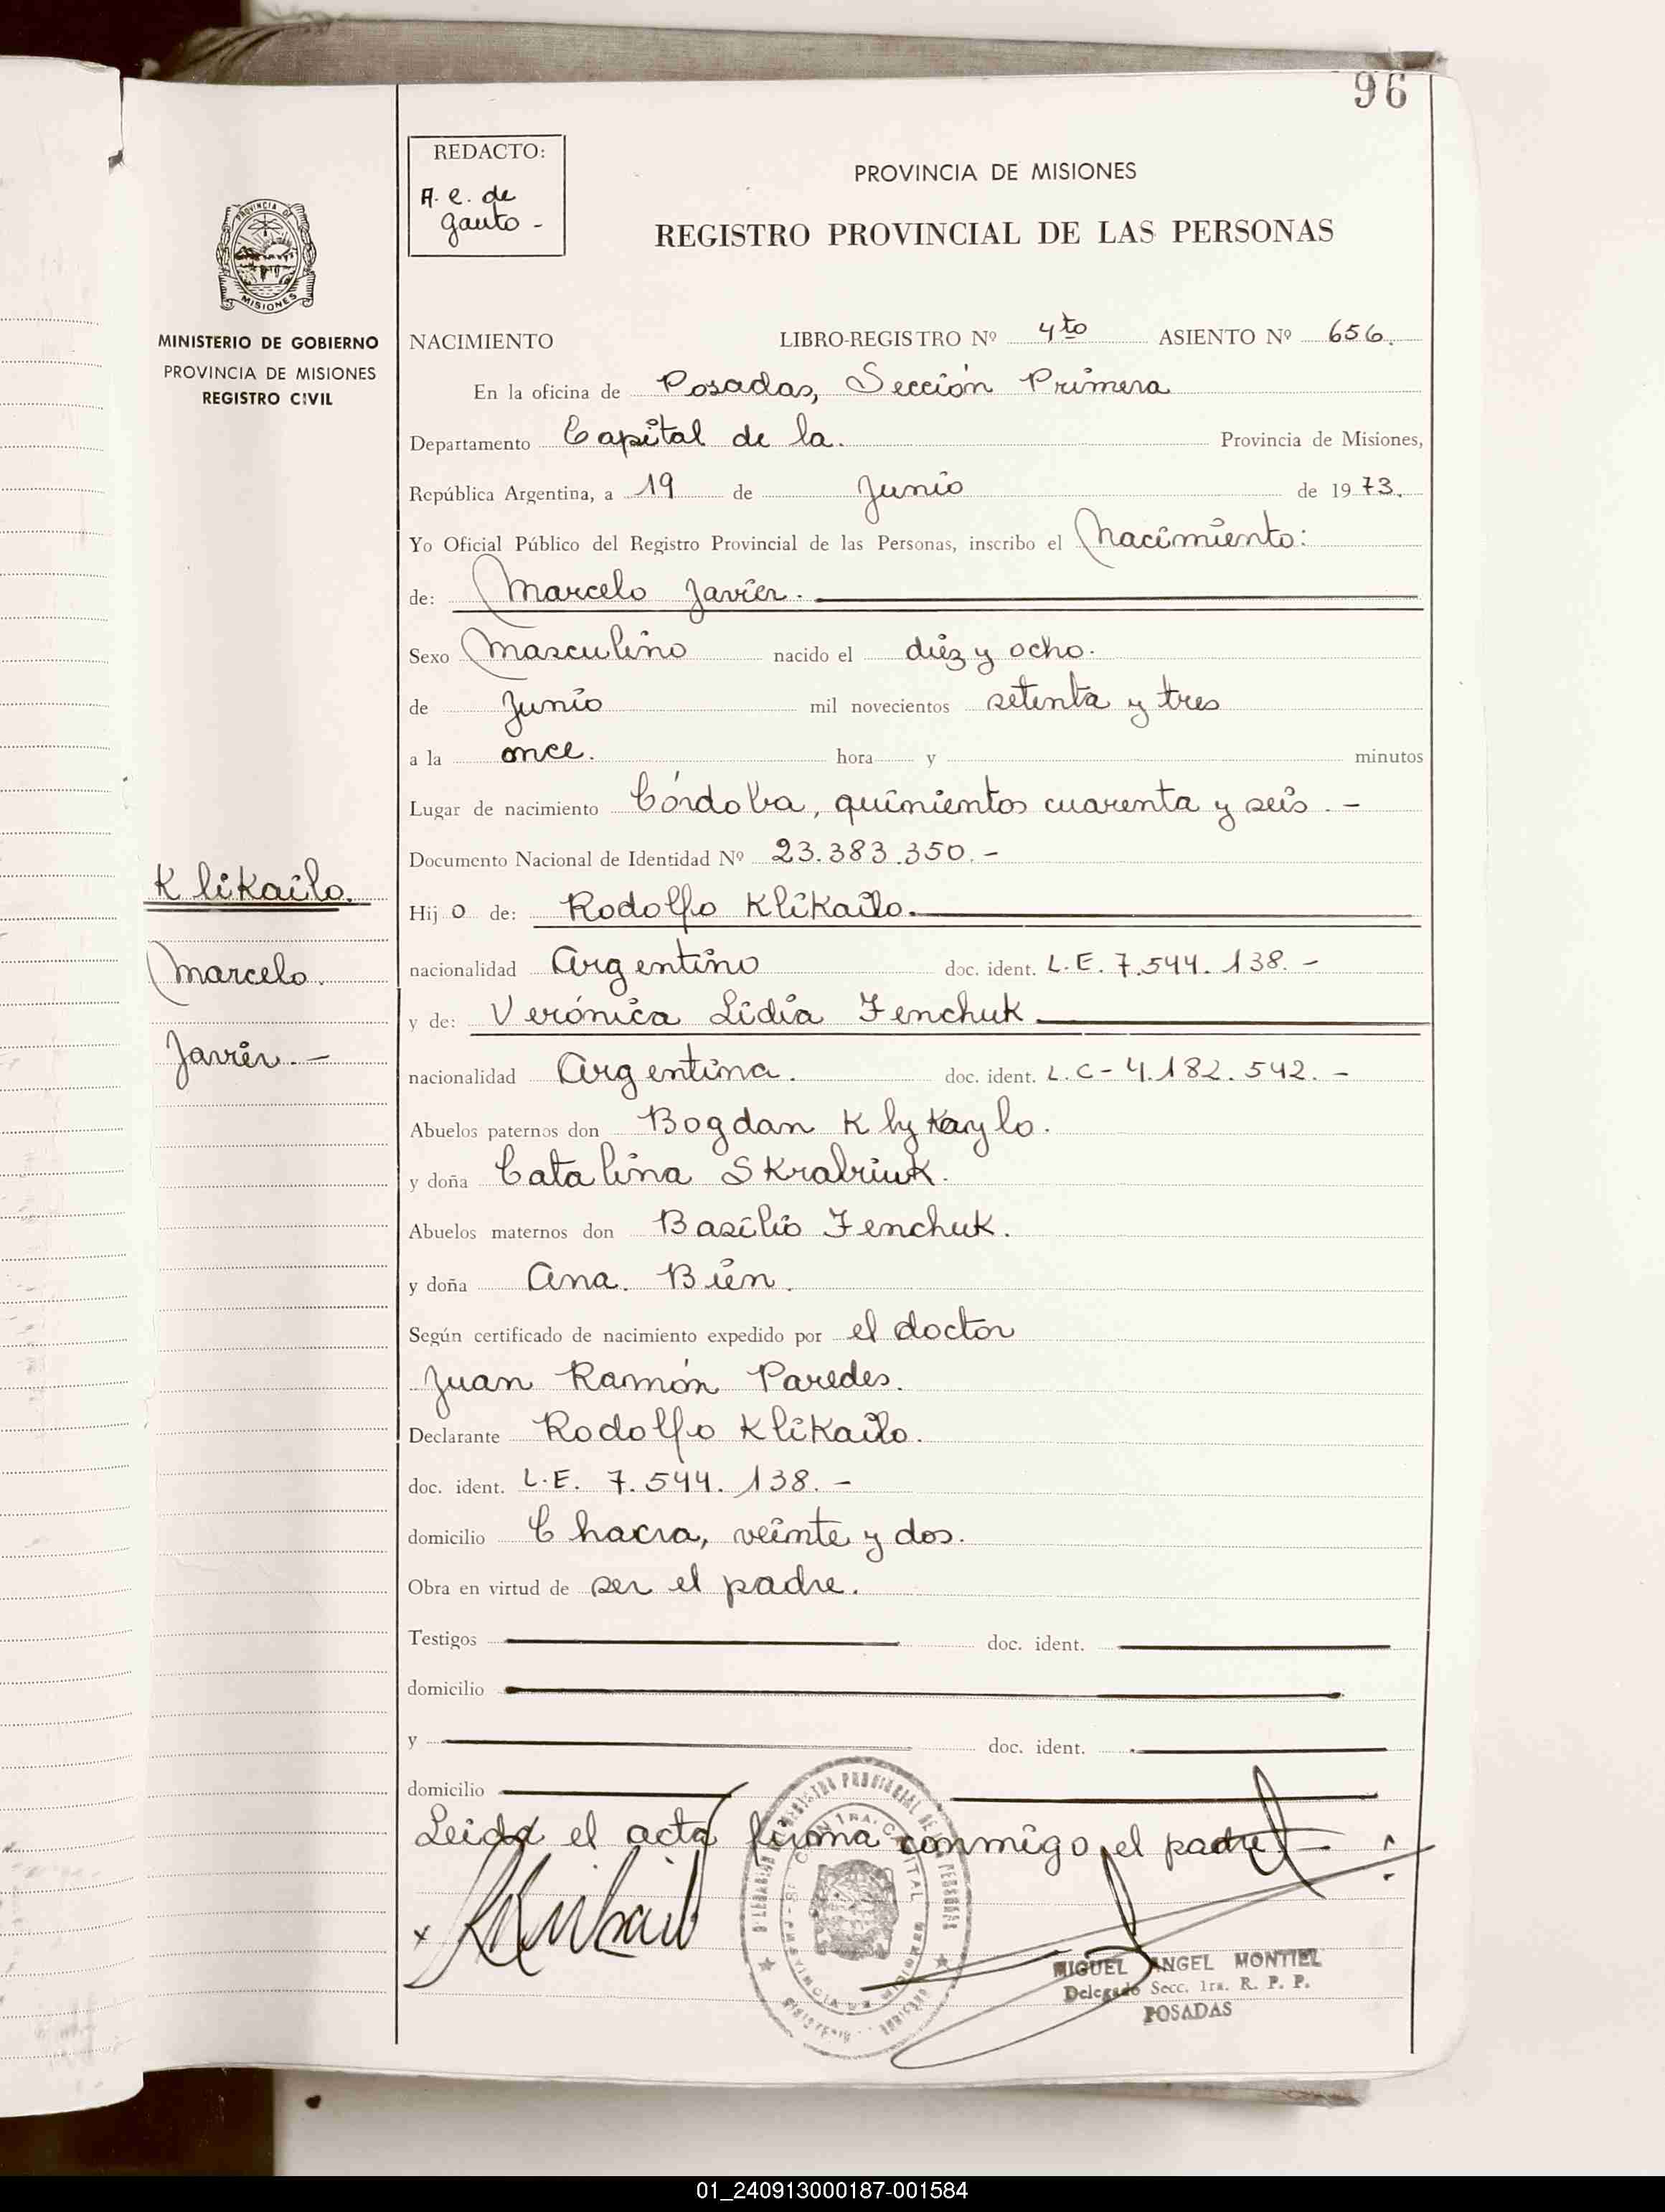 96
REDACTO:
A. e. de
Gauto -
PROVINCIA DE MISIONES
REGISTRO PROVINCIAL DE LAS PERSONAS
PROVINCIA DE
MISIONES
MINISTERIO DE GOBIERNO
PROVINCIA DE MISIONES
REGISTRO CIVIL
NACIMIENTO LIBRO-REGISTRO Nº 4to ASIENTO Nº 656.
En la oficina de Posadas, Sección Primera
Departamento Capital de la. Provincia de Misiones,
República Argentina, a 19 de Junio de 1973.
Yo Oficial Público del Registro Provincial de las Personas, inscribo el Nacimiento:
de: Marcelo Javier.
Sexo Masculino nacido el diez y ocho.
de Junio mil novecientos setenta y tres
a la once. hora y minutos
Lugar de nacimiento Córdoba, quinientos cuarenta y seis. -
Documento Nacional de Identidad Nº 23.383.350. -
Klikailo.
Marcelo.
Javier. -
Hij o de: Rodolfo Klikailo.
nacionalidad Argentino doc. ident. L.E. 7.544.138. -
y de: Verónica Lidia Fenchuk
nacionalidad Argentina. doc. ident. L.C- 4.182.542. -
Abuelos paternos don Bogdan Klykaylo.
y doña Catalina Skrabriuk.
Abuelos maternos don Basilio Fenchuk.
y doña Ana. Bien.
Según certificado de nacimiento expedido por el doctor
Juan Ramón Paredes.
Declarante Rodolfo Klikailo.
doc. ident. L.E. 7.544.138. -
domicilio Chacra, veinte y dos.
Obra en virtud de ser el padre.
Testigos doc. ident.
domicilio
y doc. ident.
domicilio
Leida el acta firma conmigo el padre
MIGUEL ANGEL MONTIEL
Delegado Secc. 1ra. R. P. P.
POSADAS
01_240913000187-001584